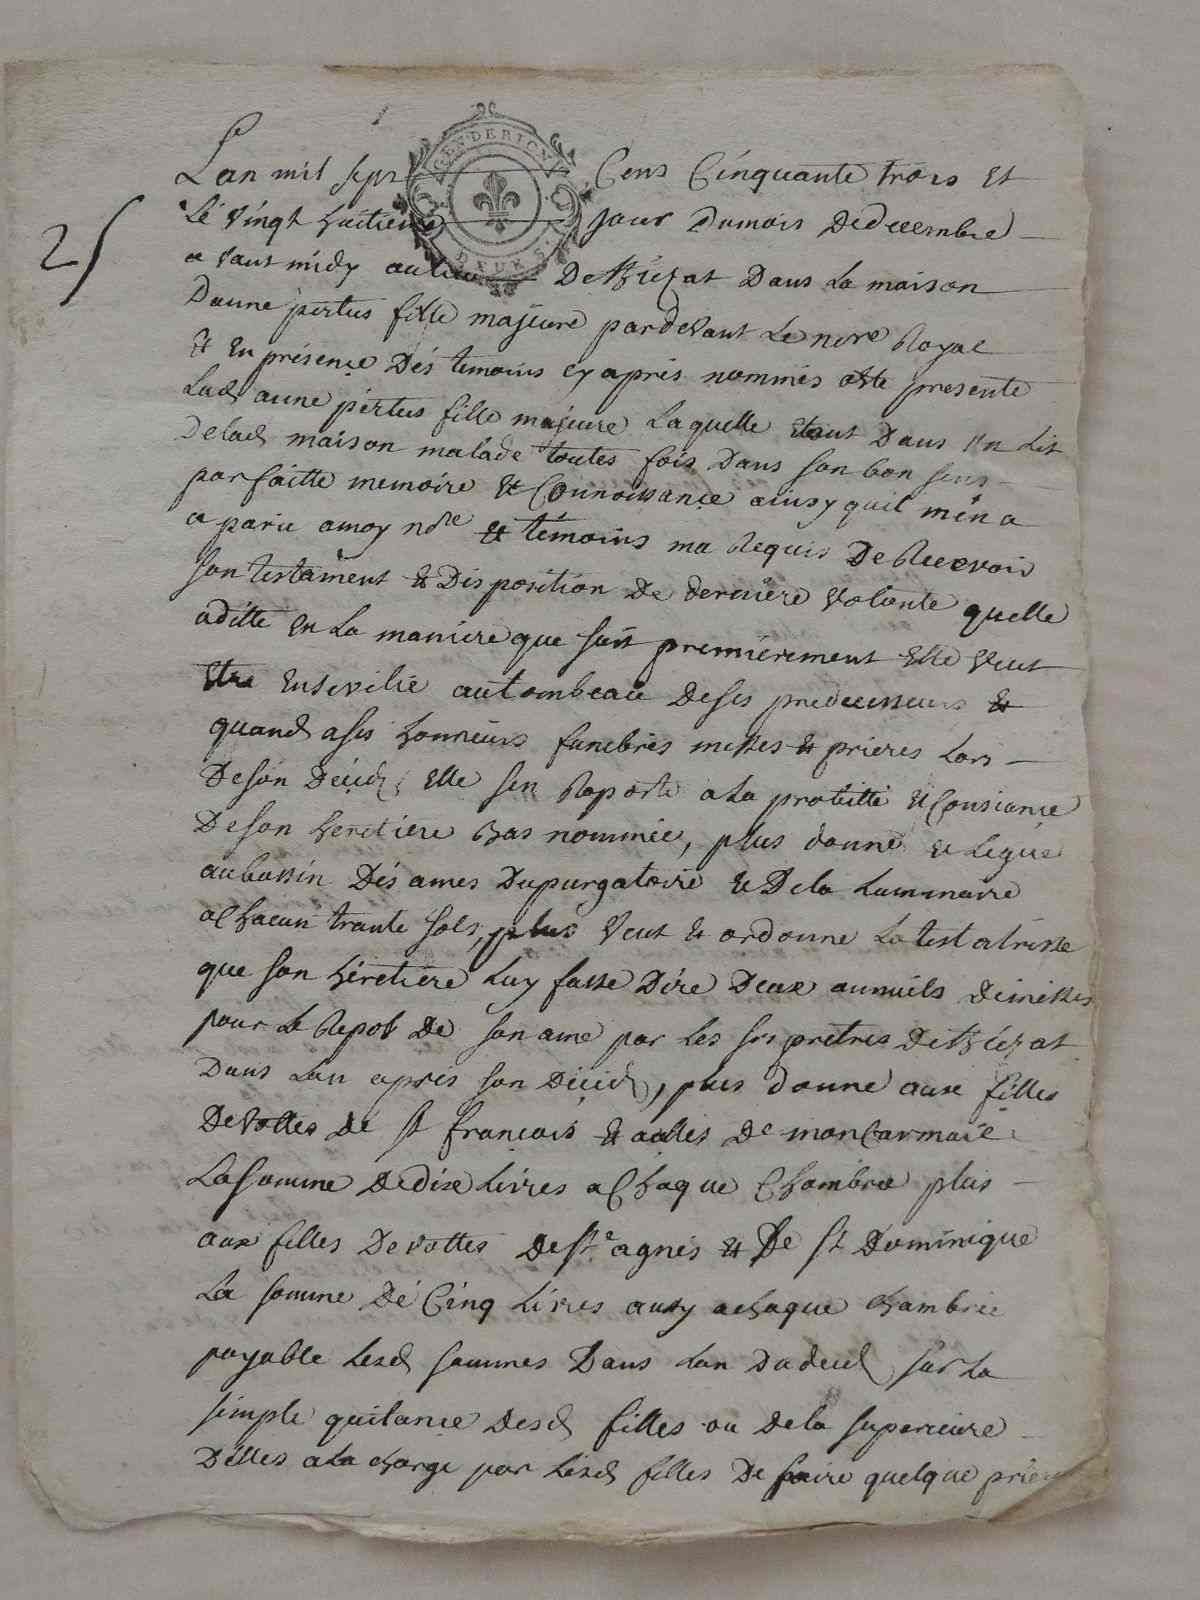 GEN DE RIOM
DEUX S
25
Lan mil sept Cens Cinquante trois et
Le vingt huitieme jour dumois dedecembre
avant midy au lieu Dans la maison
Danne pertus fille majeure pardevant Le nore Royal
et En présence Dés temoins cy aprés nommés este presente
Lad anne pertus fille majeure Laquelle etant Dans Un Lit
Delad maison malade toutes fois Dans son bon sens
parfaitte memoire et Connoissance ainsy quil men a
aparu amoy nore et témoins ma Requis De Recevoir
son testament et Disposition De derniere volonte quelle
aditte en La maniere que suit premiérement elle veut
etre Ensevelie autombeau Deses predecesseurs et
quand ases honneurs funebres messes et prieres Lors
Deson Décéd, elle sen Raporte ala probitte et Consiance
Deson heretiere Bas nommée, plus donne et Legue
aubassin Dés ames Dupurgatoire et Dela Luminaire
aChacun trante sols, plus veut et ordonne La testatrisse
que son héretiere Luy fasse Dire Deux annuels Demesses
pour Le Repos De son ame par les srs pretres
Dans Lan apres son Décéd, plus donne aux filles
Devottes de st francois et acelles De mon Carmaie
La somme Dedix Livres aChaque Chambre plus
aux filles Devottes De ste agnes et De st Dominique
La somme Dé Cinq Livres ausy achaque chambre
payable Lesd sommes Dans Lan Dudeced sur La
simple quitance Desd filles ou dela superieure
Délles ala charge par Lesd filles De faire quelque